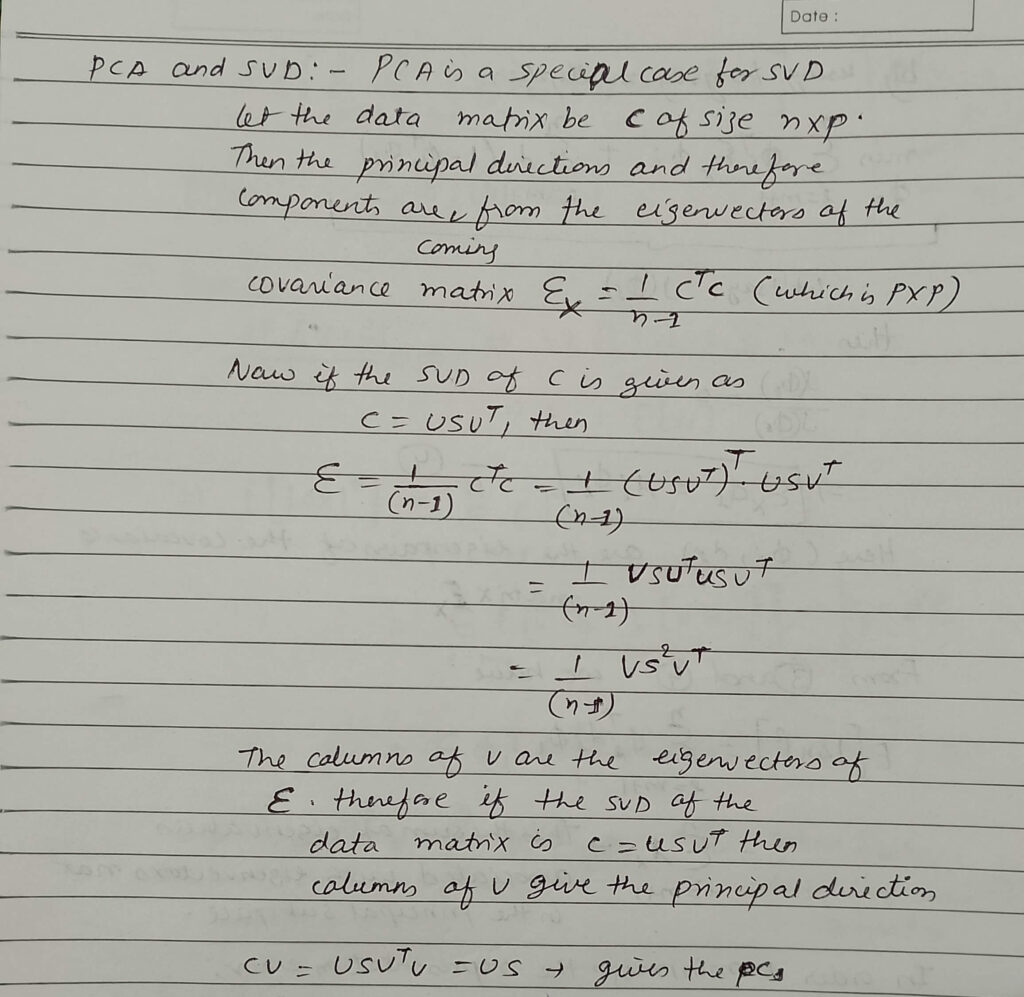 Date :
PCA and SVD:- PCA is a special case for SVD
let the data matrix be C of size nxp.
Then the principal directions and therefore
components are coming from the eigenvectors of the
covariance matrix Ɛx = 1/(n-1) CᵀC (which is PXP)
Now if the SVD of C is given as
C = USVᵀ, then
Ɛ = 1/(n-1) CᵀC = 1/(n-1) (USVᵀ)ᵀ. USVᵀ
= 1/(n-1) VSUᵀUSVᵀ
= 1/(n-1) VS²Vᵀ
The columns of V are the eigenvectors of
Ɛ. therefore if the SVD of the
data matrix is C = USVᵀ then
columns of V give the principal direction
CV = USVᵀV = US → gives the PCs